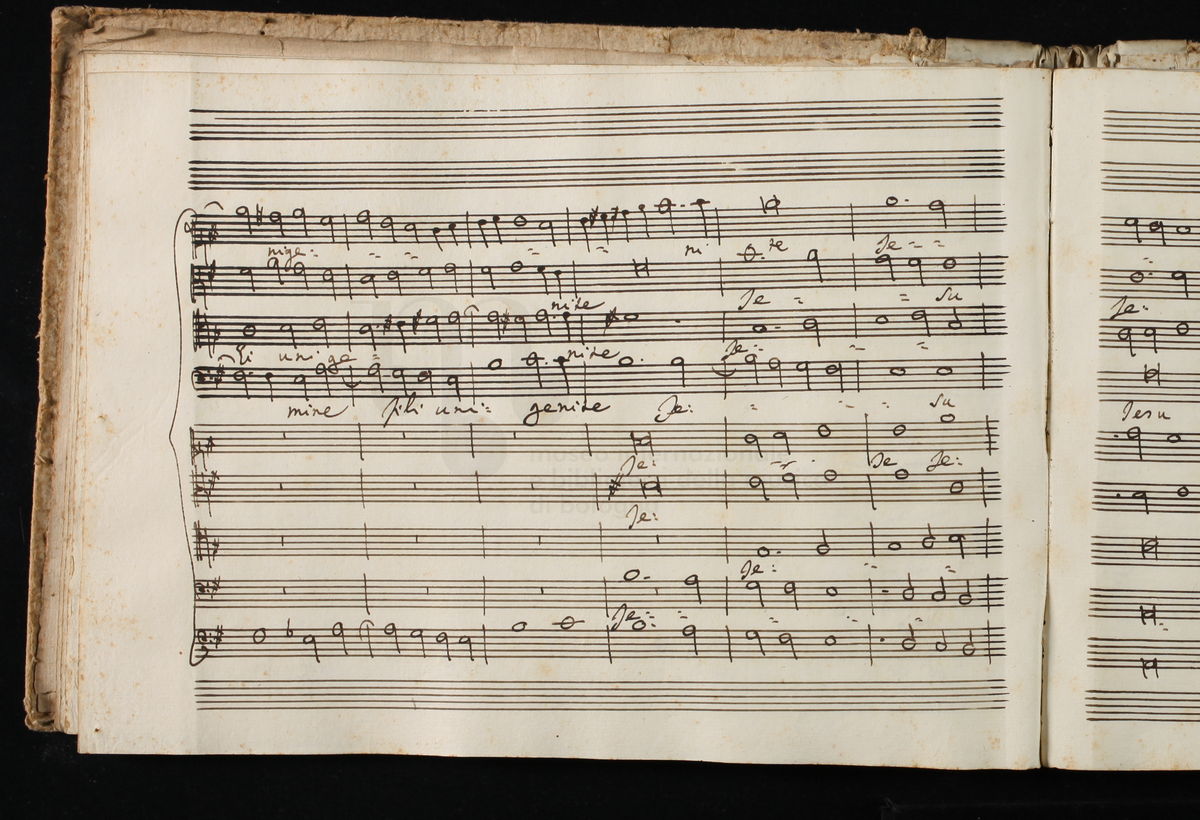 nige: = = = = ni te Je = =
nite Je = = su
li unige = nite Je: = =
mine fili uni= genite Je: = = = su
Je: = Je Je:
Je:
Je: = =
Je: = = =
Je:
Jesu
museo internazionale
e biblioteca della musica
di Bologna